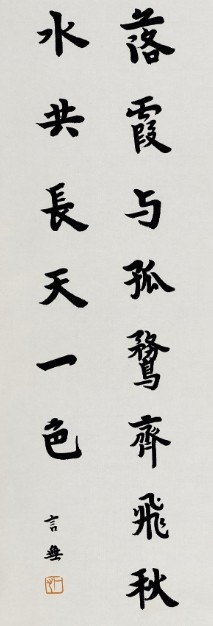 落霞与孤鶩齊飛秋
水共長天一色
言無